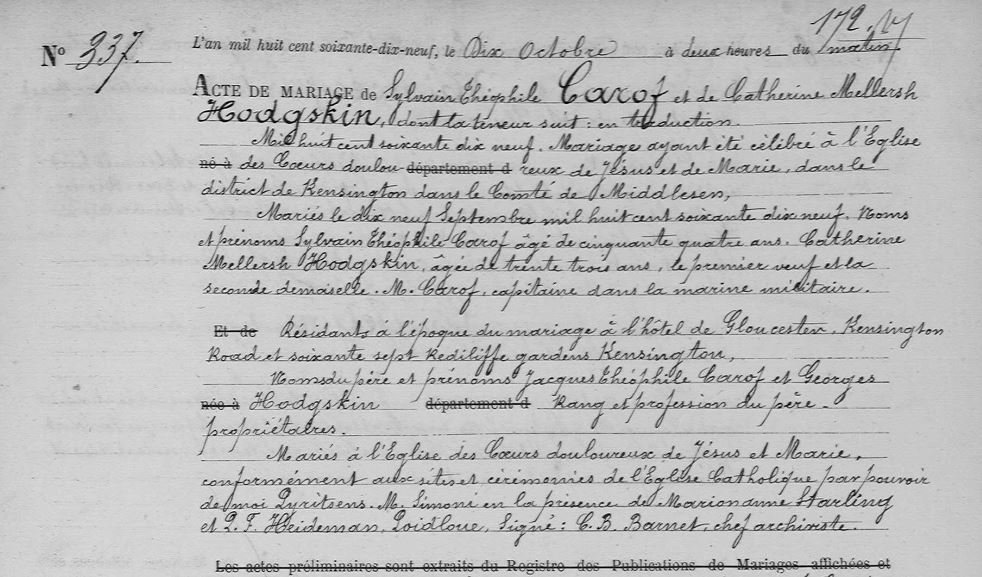 172.
Nº 337.
L'an mil huit cent soixante-dix-neuf, le Dix Octobre à deux heures du matin.
ACTE DE MARIAGE de Sylvain Théophile Carof et de Catherine Mellersh
Hodgskin, dont la teneur suit: en traduction.
Mil huit cent soixante dix neuf. Mariages ayant été célébré à l'Eglise
né à des Cœurs doulou département d reux de Jésus et de Marie, dans le
district de Kensington dans le Comté de Middlesen,
Mariés le dix neuf Septembre mil huit cent soixante dix neuf. Noms
et prénoms Sylvain Théophile Carof âgé de cinquante quatre ans. Catherine
Mellersh Hodgskin, âgée de trente trois ans, le premier veuf et la
seconde demoiselle. M. Carof, capitaine dans la marine militaire.
Et de Résidants à l'époque du mariage à l'hôtel de Gloucester, Kensington
Road et soixante sept Rediliffe gardens Kensington,
Noms du père et prénoms Jacques Théophile Carof et Georges
née à Hodgskin département d Rang et profession du père -
propriétaires.
Mariés à l'Eglise des Cœurs douloureux de Jésus et Marie,
conformément aux rites et cérémonies de l'Eglise Catholique par pouvoir
de moi Pyritsens. M. Simoni en la présence de Marionanne Starling
et P. F. Heideman, Poidloue, Signé: C. B. Barnet, chef archiviste.
Les actes préliminaires sont extraits du Registre des Publications de Mariages affichées et